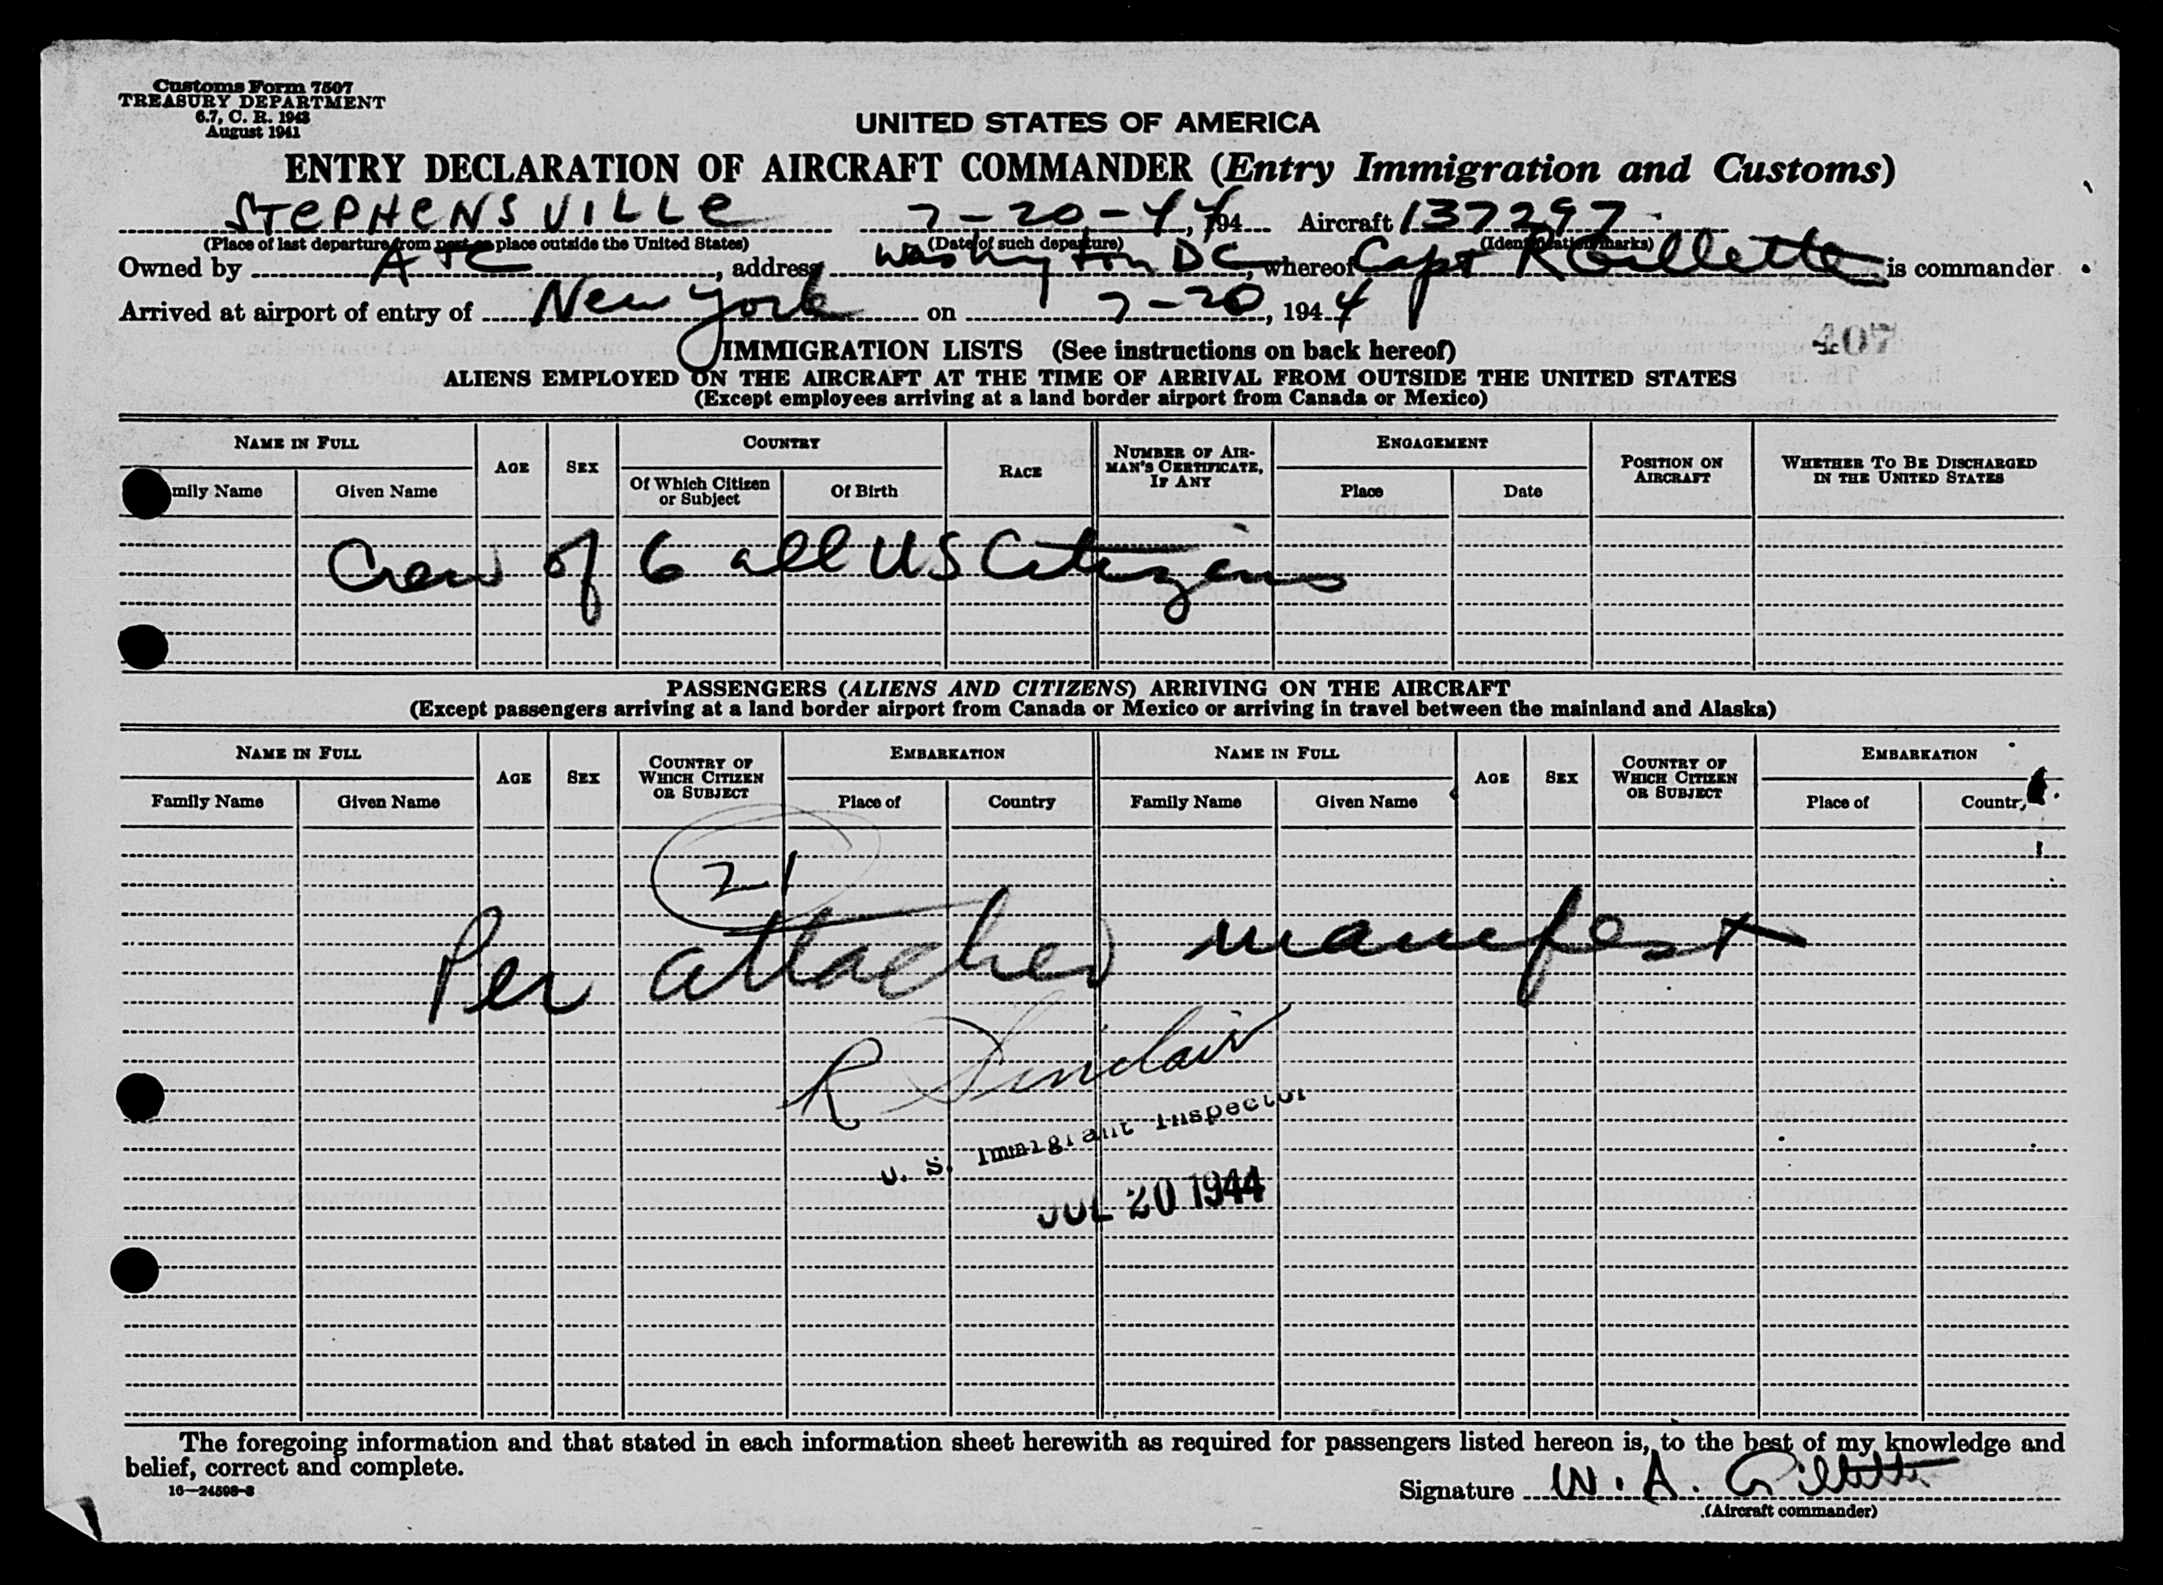 Customs Form 7507
TREASURY DEPARTMENT
6.7, C. R. 1943
August 1941
UNITED STATES OF AMERICA
ENTRY DECLARATION OF AIRCRAFT COMMANDER (Entry Immigration and Customs)
STEPHENSVILLE 7-20-44, 194 Aircraft 137297
(Place of last departure from port or place outside the United States) (Date of such departure) (Identification marks)
Owned by ATC, address Washington DC, whereof Capt R Gillette is commander
Arrived at airport of entry of New York on 7-20, 1944
407
IMMIGRATION LISTS (See instructions on back hereof)
ALIENS EMPLOYED ON THE AIRCRAFT AT THE TIME OF ARRIVAL FROM OUTSIDE THE UNITED STATES
(Except employees arriving at a land border airport from Canada or Mexico)
NAME IN FULL AGE SEX COUNTRY RACE NUMBER OF AIRMAN'S CERTIFICATE, IF ANY ENGAGEMENT POSITION ON AIRCRAFT WHETHER TO BE DISCHARGED IN THE UNITED STATES
mily Name Given Name Of Which Citizen or Subject Of Birth Place Date
Crew of 6 all US Citizens
PASSENGERS (ALIENS AND CITIZENS) ARRIVING ON THE AIRCRAFT
(Except passengers arriving at a land border airport from Canada or Mexico or arriving in travel between the mainland and Alaska)
NAME IN FULL AGE SEX COUNTRY OF WHICH CITIZEN OR SUBJECT EMBARKATION NAME IN FULL AGE SEX COUNTRY OF WHICH CITIZEN OR SUBJECT EMBARKATION
Family Name Given Name Place of Country Family Name Given Name Place of Country
21
Per attached manifest
R Sinclair
U. S. Immigrant Inspector
JUL 20 1944
The foregoing information and that stated in each information sheet herewith as required for passengers listed hereon is, to the best of my knowledge and
belief, correct and complete.
16—24598-3
Signature W. A. Gillette
(Aircraft commander)